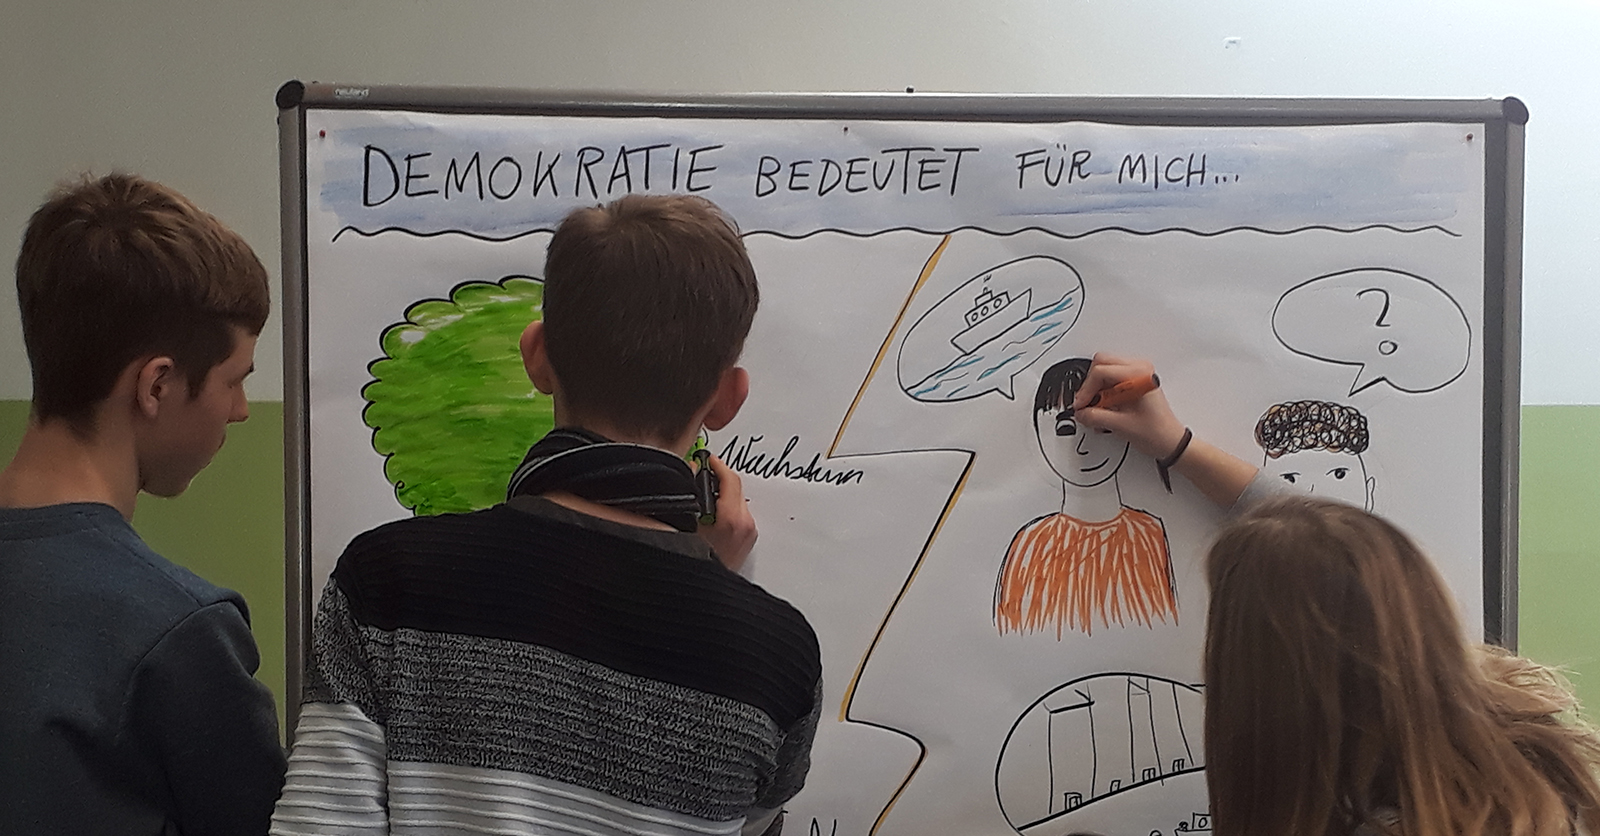 neuland
DEMOKRATIE BEDEUTET FÜR MICH...
?
Wachstum